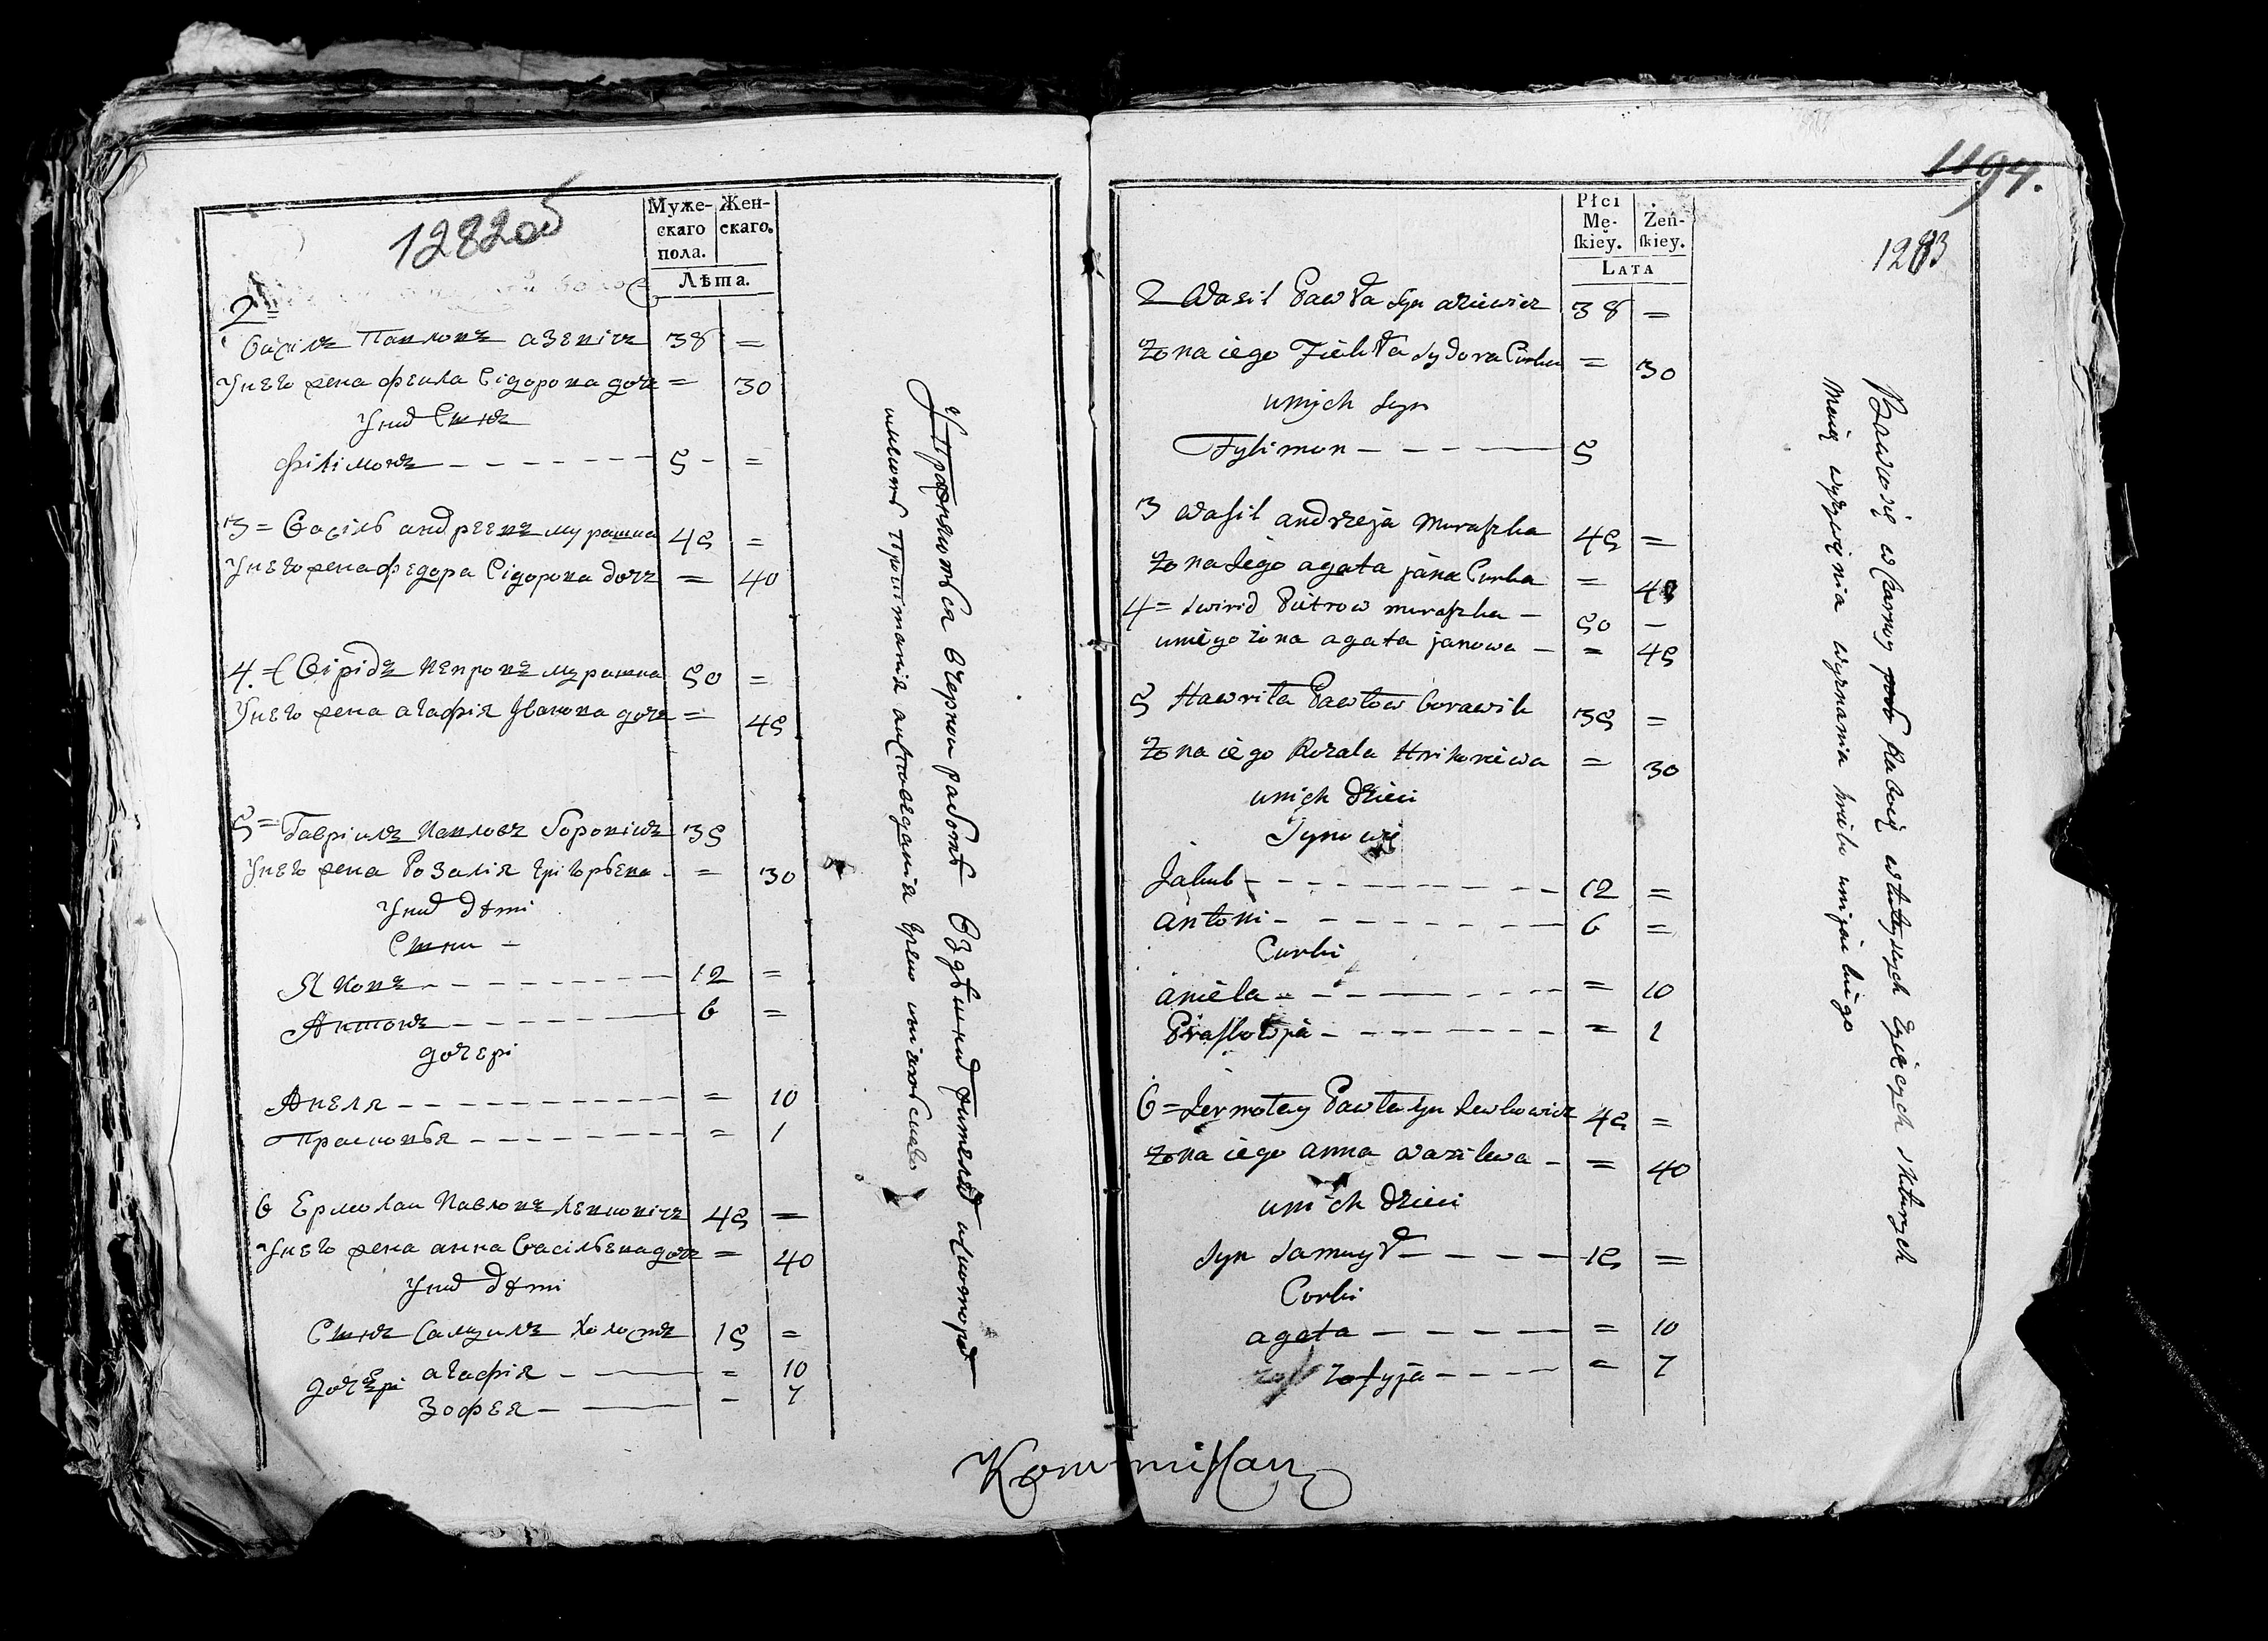 1282об
Муже-
скаго
пола.
Жен-
скаго.
Лѣта.
2 =
Василъ Павловъ Азевičъ 38 =
у него жена Фекла Сідорова дочь = 30
у нихъ сынъ
Філімонъ - - - - - - - 5 - =
3 = Васіль Андреевъ Мурашка 45 =
у него жена Федора Сідорова дочь = 40
4. = Свірідъ Петровъ Мурашка 50 =
у него жена Агафія Іванова дочь = 45
5 = Гавріилъ Павловъ Боровікъ 35
у него жена Розалія Грігорьева - = 30
у нихъ дѣти
Сыны -
Яковъ - - - - - - - 12 =
Антонъ - - - - - - 6 =
дочері
Анеля - - - - - - - = 10
Прасковья - - - - - - = 1
6 Ермолай Павловъ Левковічъ 45 =
у него жена Анна Васільева дочь = 40
у нихъ дѣти
Сынъ Самуилъ холостъ 15 =
дочері Агафія - - = 10
Зофея - - - 7
Упражняются в черной работѣ В здѣшнихъ жителяхъ и с которой
имеютъ пропитанія
1194.
1283
Płci
Mę-
ſkiey.
Żeń-
ſkiey.
LATA
2 Wasil Pawła Syn Aziewicz 38 =
Żona iego Fiekła Sydora Curka = 30
u nich Syn
Fylimon - - - - 5
3 Wasil Andrzeja Muraszka 45 =
Żona Jego Agata Jana Curka = 40
4 = Swirid Piotrow Muraszka - 50 -
u niego żona Agata Janowa - = 45
5 Hawriła Pawłow Borawik 35 =
Żona iego Rozala Hrihoriewa = 30
u nich dzieci
Synowie
Jakub - - - - - - - - 12 =
Antoni - - - - - - - 6 =
Curki
Aniela - - - - - - - = 10
Praskowja - - - - - - = 1
6 = Jermołay Pawła Syn Lewkowicz 45 =
Żona iego Anna Wasilewa - = 40
u nich dzieci
Syn Samuył - - - - 15 =
Corki
Agata - - - - - = 10
Zofyja - - - - = 7
Bawio się w Czarney Raboty w tuteyszych Życących s kturych
Maią wyżywienia wyznania
Kommiſſarz